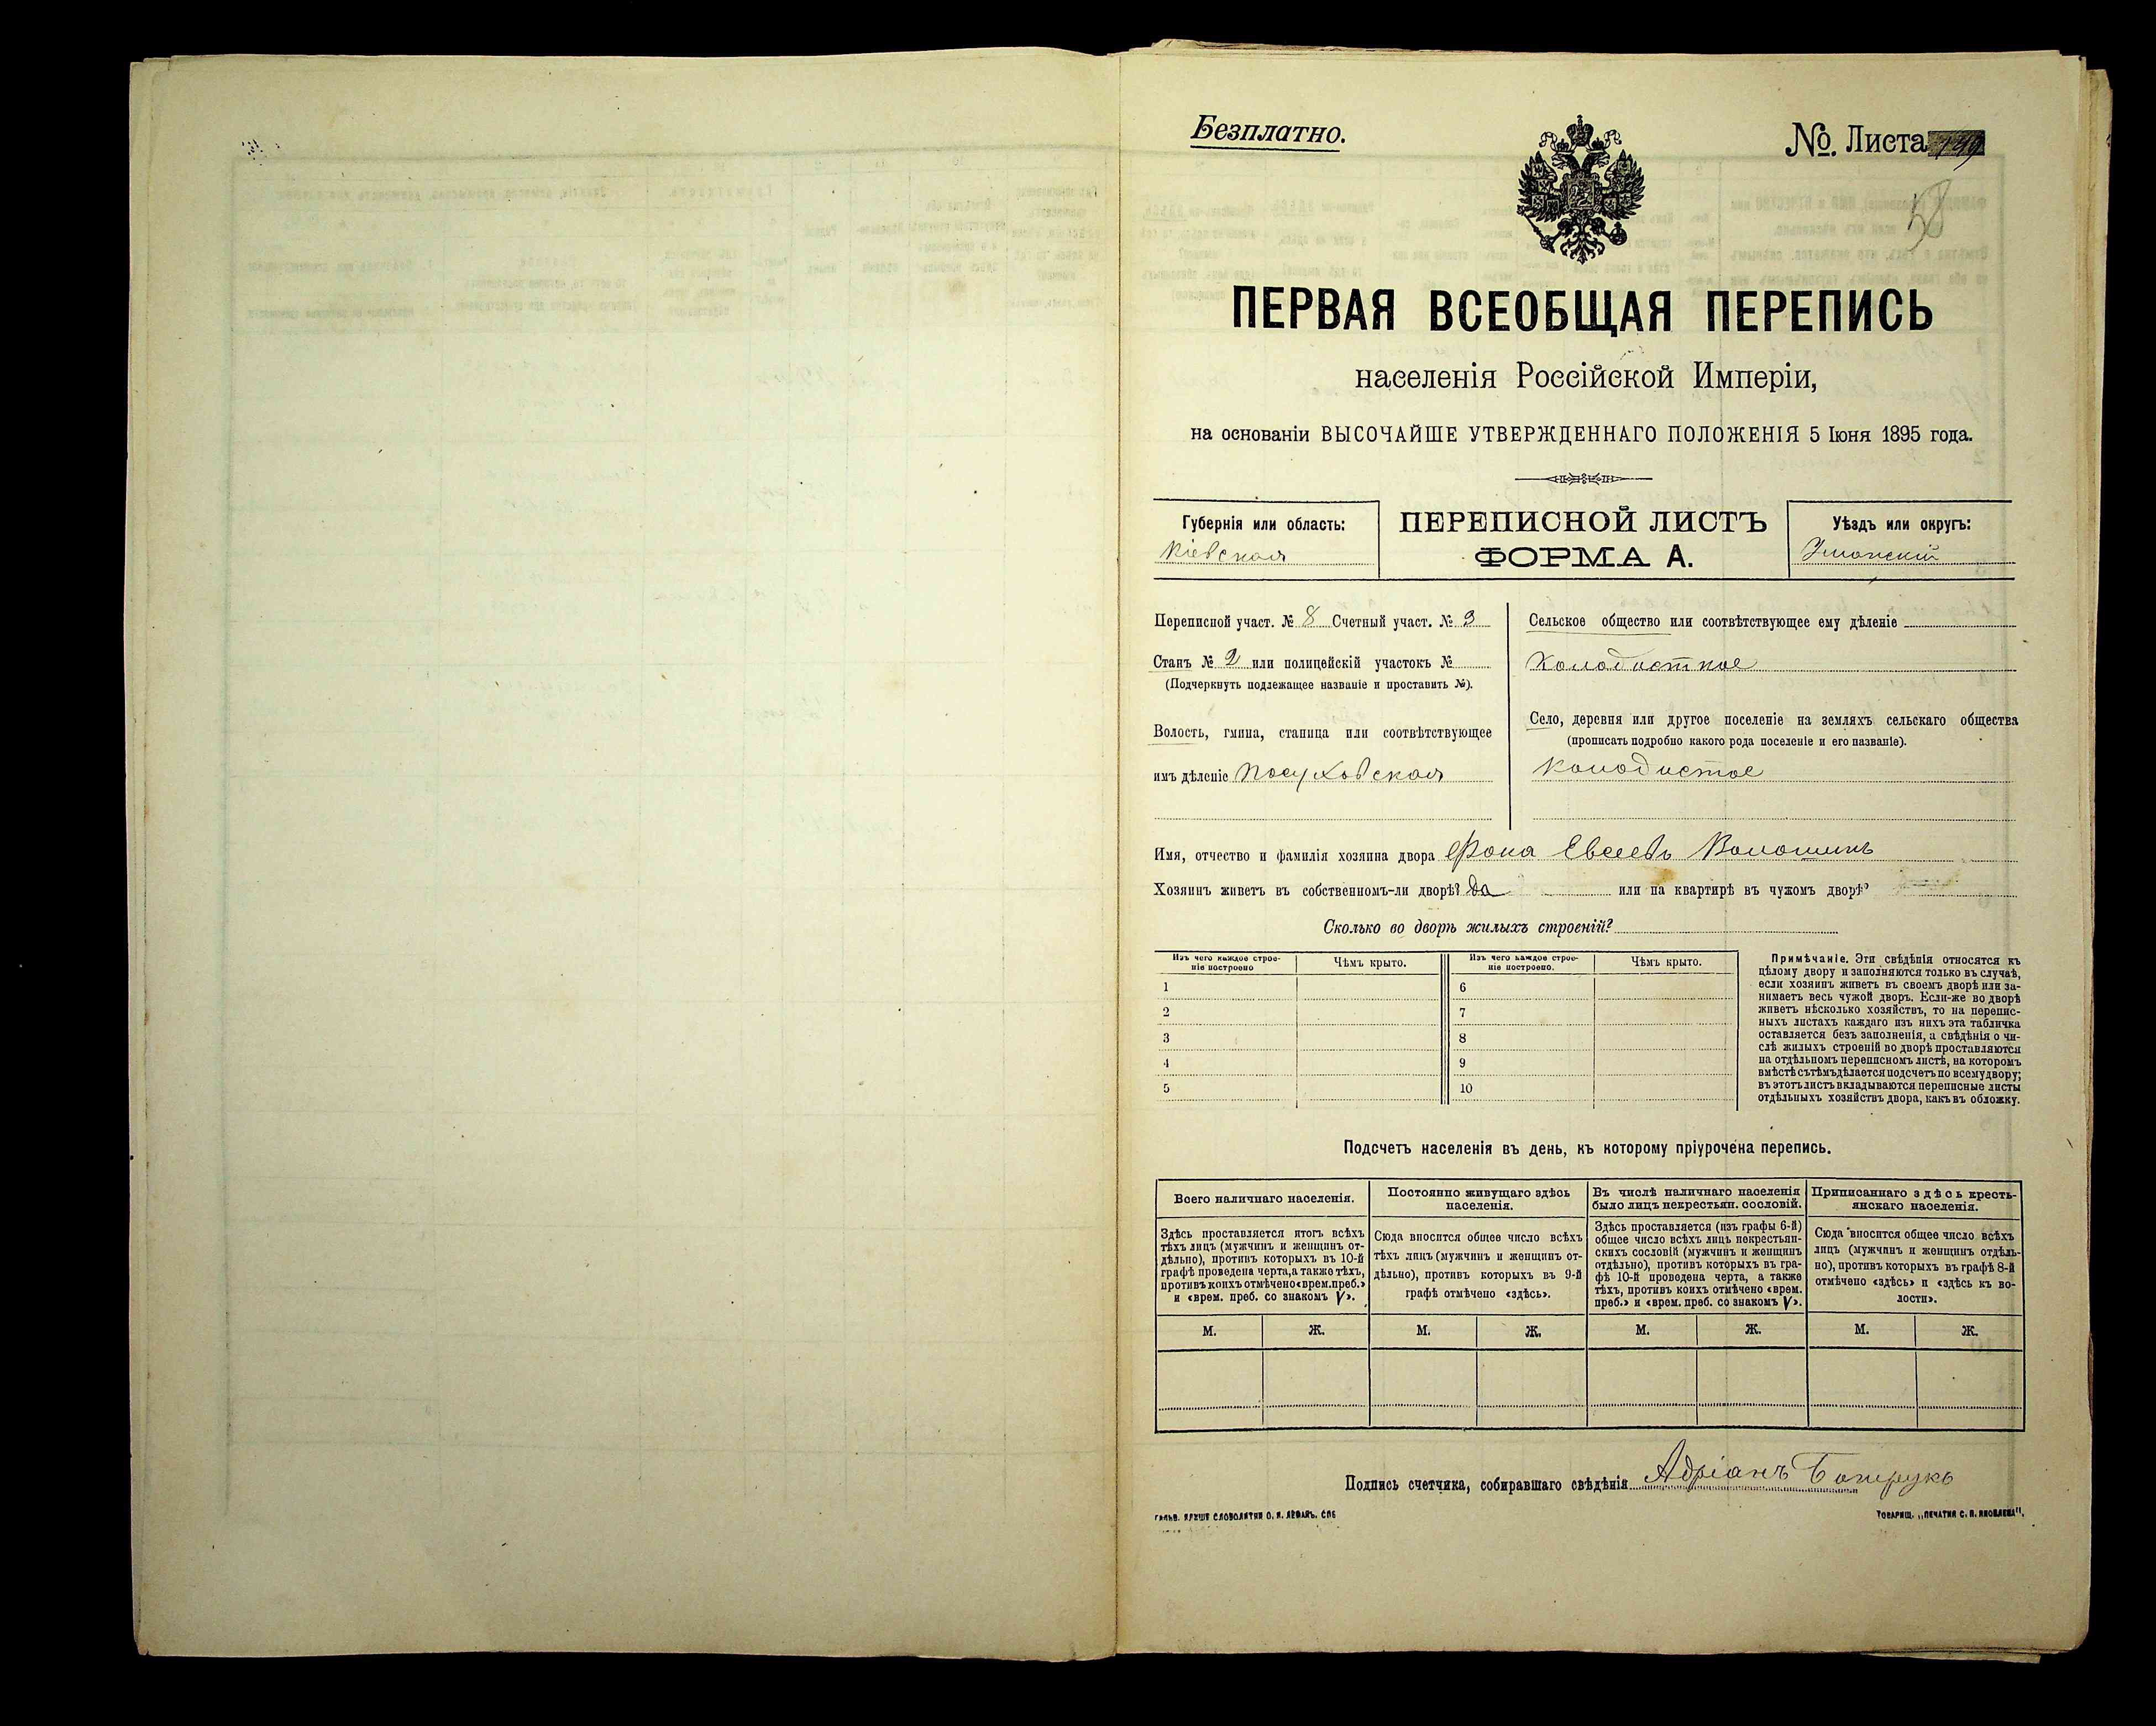 Безплатно.
№. Листа 149
58
ПЕРВАЯ ВСЕОБЩАЯ ПЕРЕПИСЬ
населенія Россійской Имперіи,
на основаніи ВЫСОЧАЙШЕ УТВЕРЖДЕННАГО ПОЛОЖЕНІЯ 5 Іюня 1895 года.
Губернія или область:
Кіевская
ПЕРЕПИСНОЙ ЛИСТЪ
ФОРМА А.
Уѣздъ или округъ:
Уманскій
Переписной участ. № 8 Счетный участ. № 3
Станъ № 2 или полицейскій участокъ №
(Подчеркнуть подлежащее названіе и проставить №).
Волость, гмина, станица или соотвѣтствующее
имъ дѣленіе Посуховская
Сельское общество или соотвѣтствующее ему дѣленіе
Колодистное
Село, деревня или другое поселеніе на земляхъ сельскаго общества
(прописать подробно какого рода поселеніе и его названіе).
Колодистое
Имя, отчество и фамилія хозяина двора Фока Евсеевъ Волошинъ
Хозяинъ живетъ въ собственномъ-ли дворѣ? да или на квартирѣ въ чужомъ дворѣ?
Сколько во дворѣ жилыхъ строеній?
Изъ чего каждое строе-
ніе построено
Чѣмъ крыто.
Изъ чего каждое строе-
ніе построено.
Чѣмъ крыто.
1
6
2
7
3
8
4
9
5
10
Примѣчаніе. Эти свѣдѣнія относятся къ
цѣлому двору и заполняются только въ случаѣ,
если хозяинъ живетъ въ своемъ дворѣ или за-
нимаетъ весь чужой дворъ. Если-же во дворѣ
живетъ нѣсколько хозяйствъ, то на перепис-
ныхъ листахъ каждаго изъ нихъ эта табличка
оставляется безъ заполненія, а свѣдѣнія о чи-
слѣ жилыхъ строеній во дворѣ проставляются
на отдѣльномъ переписномъ листѣ, на которомъ
вмѣстѣ съ тѣмъ дѣлается подсчетъ по всему двору;
въ этотъ листъ вкладываются переписные листы
отдѣльныхъ хозяйствъ двора, какъ въ обложку.
Подсчетъ населенія въ день, къ которому пріурочена перепись.
Всего наличнаго населенія.
Постоянно живущаго здѣсь
населенія.
Въ числѣ наличнаго населенія
было лицъ некрестьян. сословій.
Приписаннаго здѣсь кресть-
янскаго населенія.
Здѣсь проставляется итогъ всѣхъ
тѣхъ лицъ (мужчинъ и женщинъ от-
дѣльно), противъ которыхъ въ 10-й
графѣ проведена черта, а также тѣхъ,
противъ коихъ отмѣчено «врем. преб.»
и «врем. преб. со знакомъ V».
Сюда вносится общее число всѣхъ
тѣхъ лицъ (мужчинъ и женщинъ от-
дѣльно), противъ которыхъ въ 9-й
графѣ отмѣчено «здѣсь».
Здѣсь проставляется (изъ графы 6-й)
общее число всѣхъ лицъ некрестьян-
скихъ сословій (мужчинъ и женщинъ
отдѣльно), противъ которыхъ въ гра-
фѣ 10-й проведена черта, а также
тѣхъ, противъ коихъ отмѣчено «врем.
преб.» и «врем. преб. со знакомъ V».
Сюда вносится общее число всѣхъ
лицъ (мужчинъ и женщинъ отдѣль-
но), противъ которыхъ въ графѣ 8-й
отмѣчено «здѣсь» и «здѣсь къ во-
лости».
М. Ж. М. Ж. М. Ж. М. Ж.
Подпись счетчика, собиравшаго свѣдѣнія Адріанъ
СЛОВОЛИТНИ О. И. ЛЕМАНЪ. СПБ
ТОВАРИЩ. „ПЕЧАТНЯ С. П. ЯКОВЛЕВА".